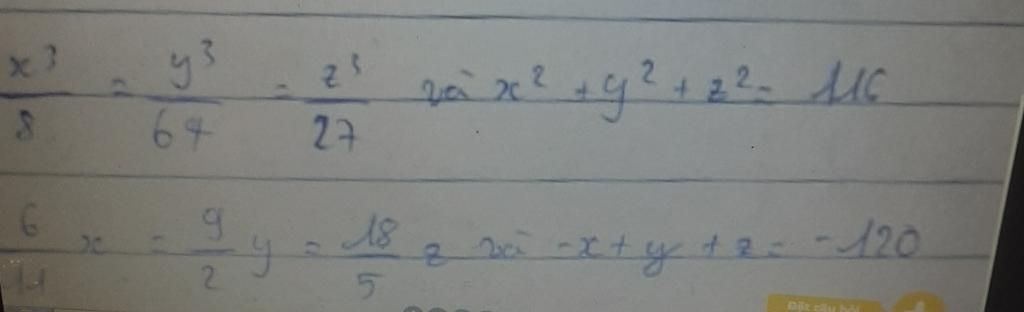 x³/8 = y³/64 = z³/27 và x² + y² + z² = 116
6/11 x = 9/2 y = 18/5 z và -x + y + z = -120
Đặt câu hỏi